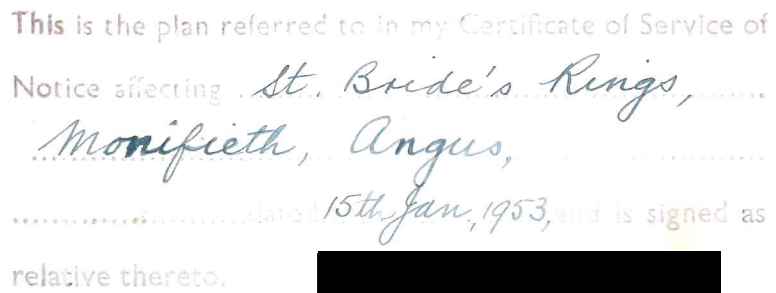 This is the plan referred to in my Certificate of Service of
Notice affecting St. Bride's Rings,
Monifieth, Angus,
dated 15th Jan, 1953, and is signed as
relative thereto.